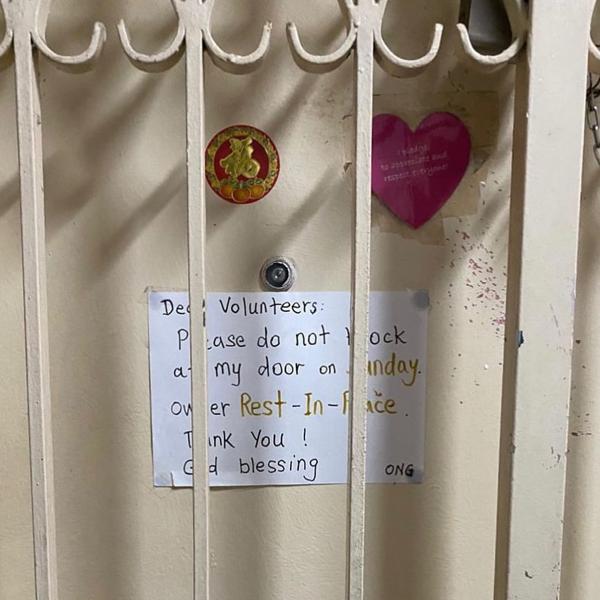 I pledge
to appreciate and
respect everyone!
Dear Volunteers:
Please do not knock
at my door on Sunday.
Owner Rest-In-Peace.
Thank You !
God blessing ONG